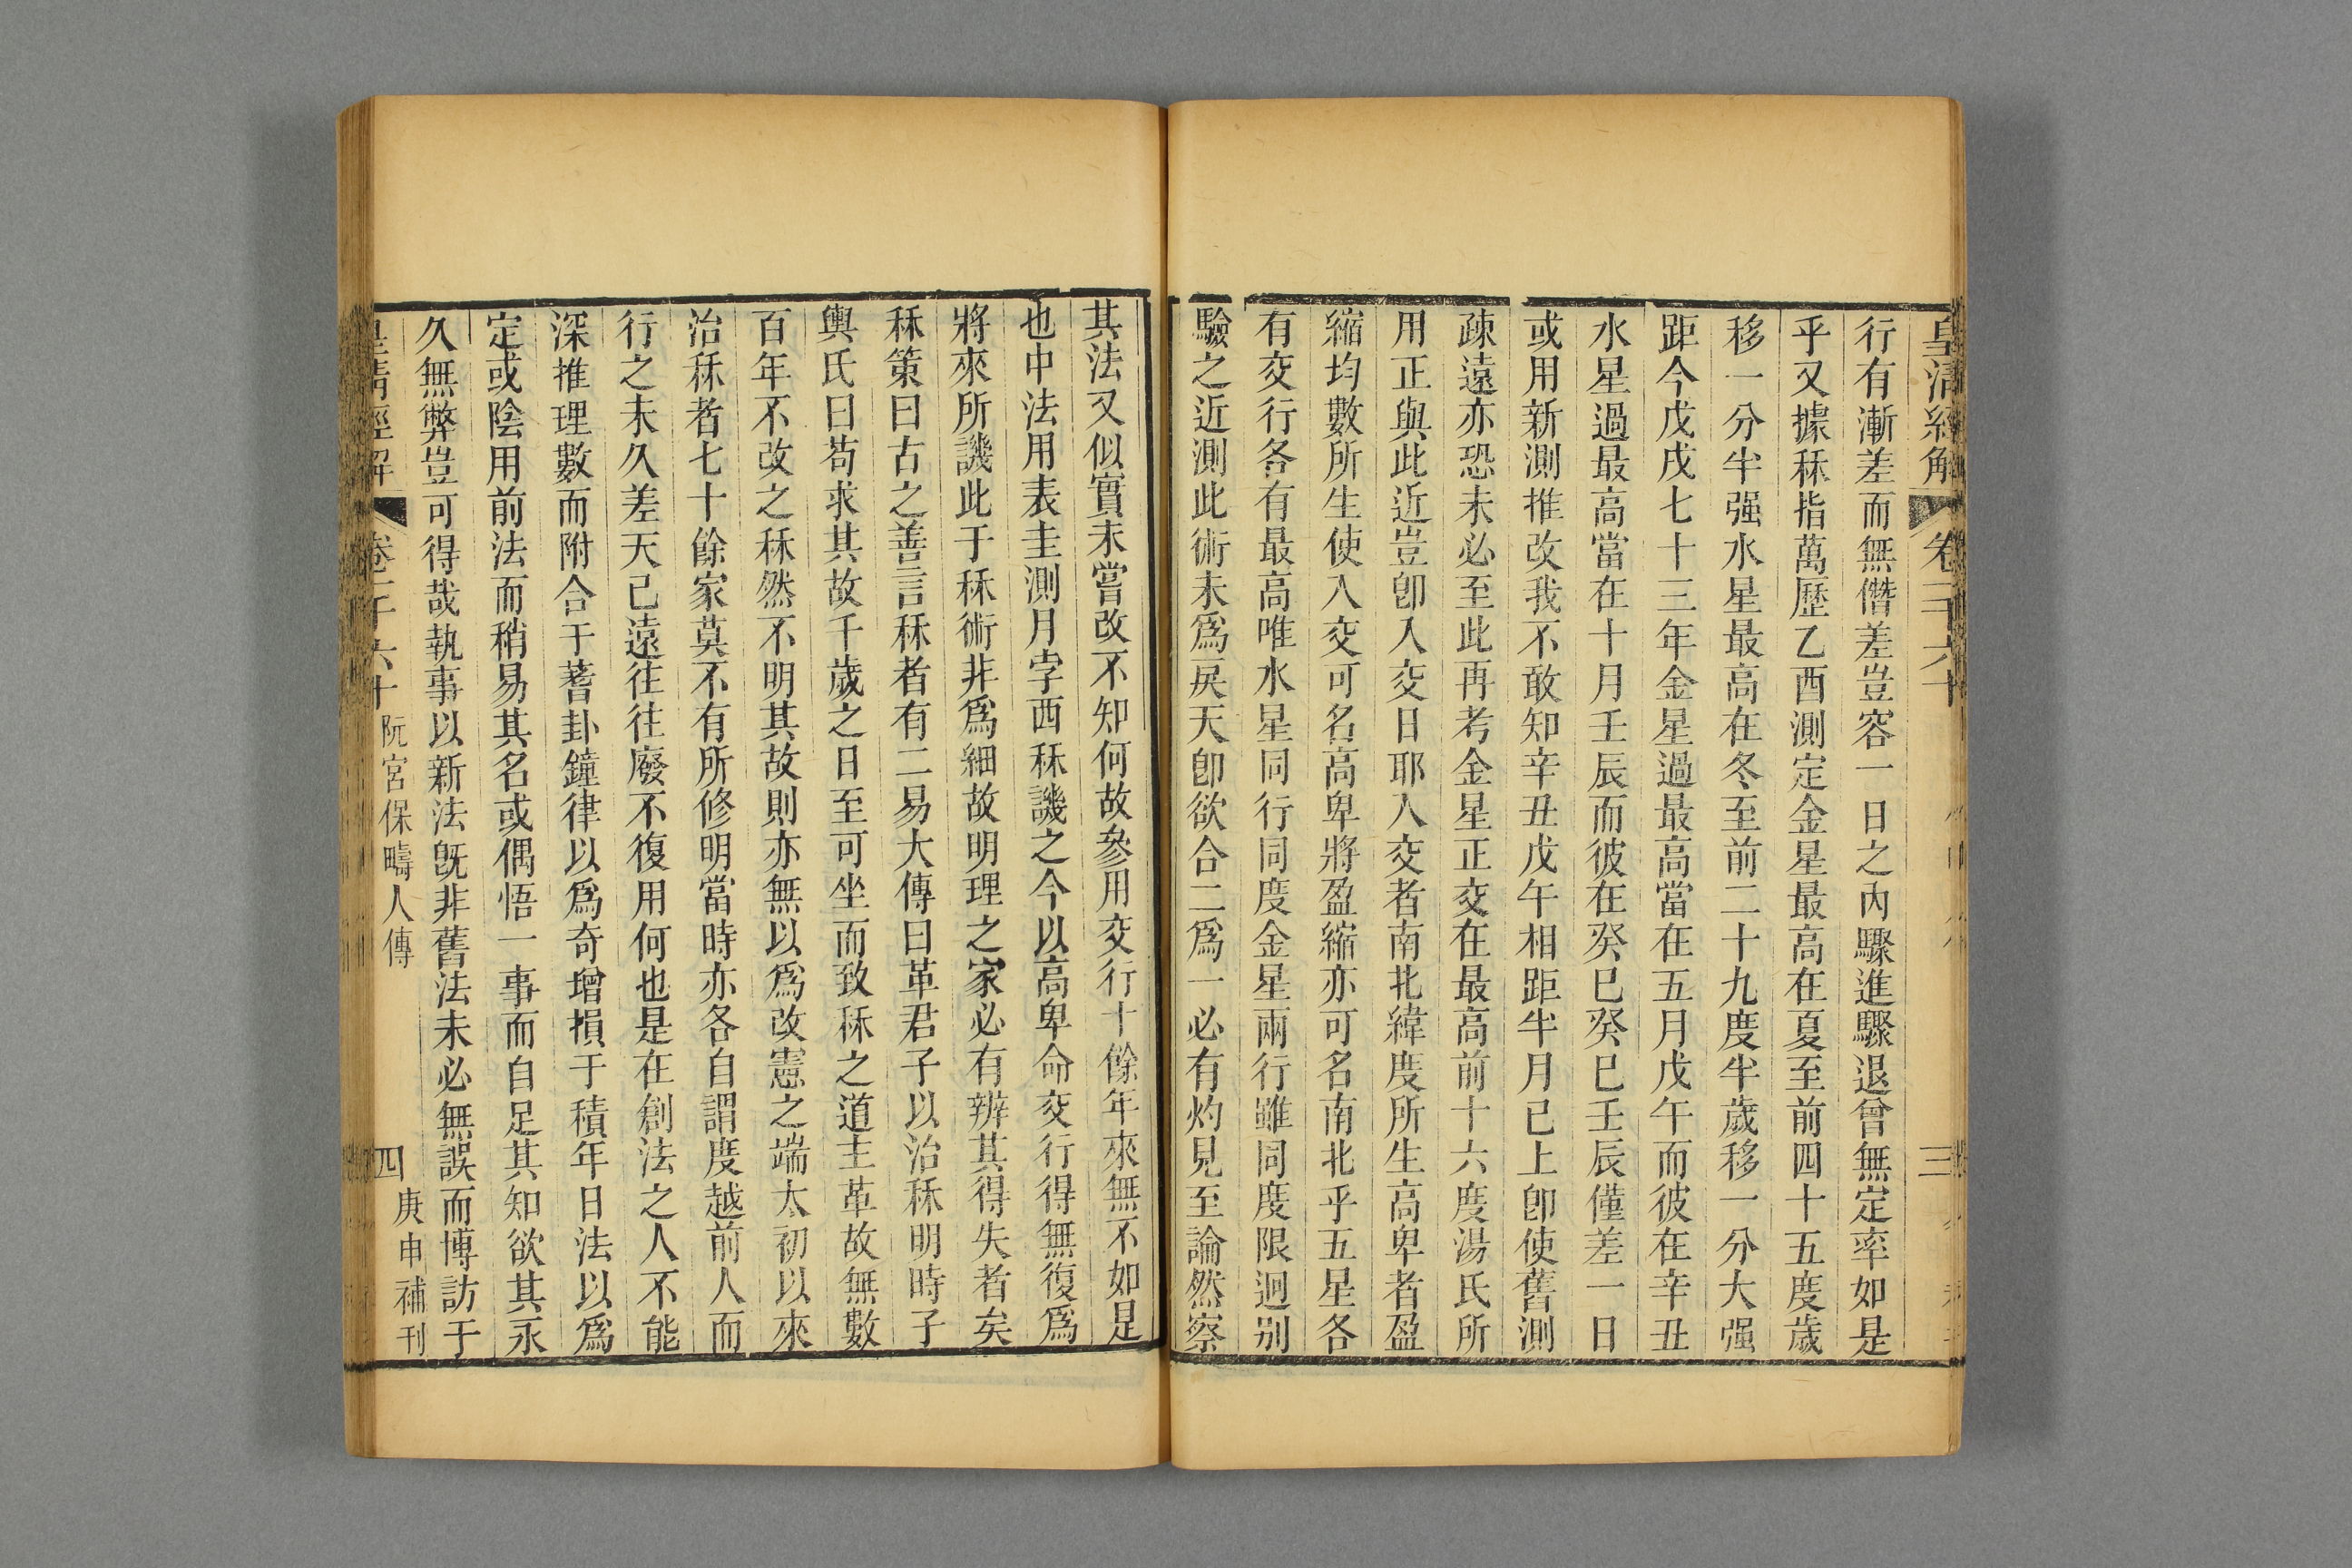 皇清經解 卷一千六十 三
行有漸差而無僭差豈容一日之內驟進驟退曾無定率如是
乎又據秝指萬歷乙酉測定金星最高在夏至前四十五度歲
移一分半强水星最高在冬至前二十九度半歲移一分大强
距今戊戌七十三年金星過最高當在五月戊午而彼在辛丑
水星過最高當在十月壬辰而彼在癸巳癸巳壬辰僅差一日
或用新測推改我不敢知辛丑戊午相距半月已上卽使舊測
疎遠亦恐未必至此再考金星正交在最高前十六度湯氏所
用正與此近豈卽入交日耶入交者南北緯度所生高卑者盈
縮均數所生使入交可名高卑將盈縮亦可名南北乎五星各
有交行各有最高唯水星同行同度金星兩行雖同度限迥别
驗之近測此術未爲戾天卽欲合二爲一必有灼見至論然察
其法又似實未嘗改不知何故參用交行十餘年來無不如是
也中法用表圭測月孛西秝譏之今以高卑命交行得無復爲
將來所譏此于秝術非爲細故明理之家必有辨其得失者矣
秝策曰古之善言秝者有二易大傳曰革君子以治秝明時子
輿氏曰苟求其故千歲之日至可坐而致秝之道主革故無數
百年不改之秝然不明其故則亦無以爲改憲之端太初以來
治秝者七十餘家莫不有所修明當時亦各自謂度越前人而
行之未久差天已遠往往廢不復用何也是在創法之人不能
深推理數而附合于蓍卦鐘律以爲奇增損于積年日法以爲
定或陰用前法而稍易其名或偶悟一事而自足其知欲其永
久無弊豈可得哉執事以新法旣非舊法未必無誤而博訪于
皇清經解 卷一千六十 阮宮保疇人傳 四 庚申補刊